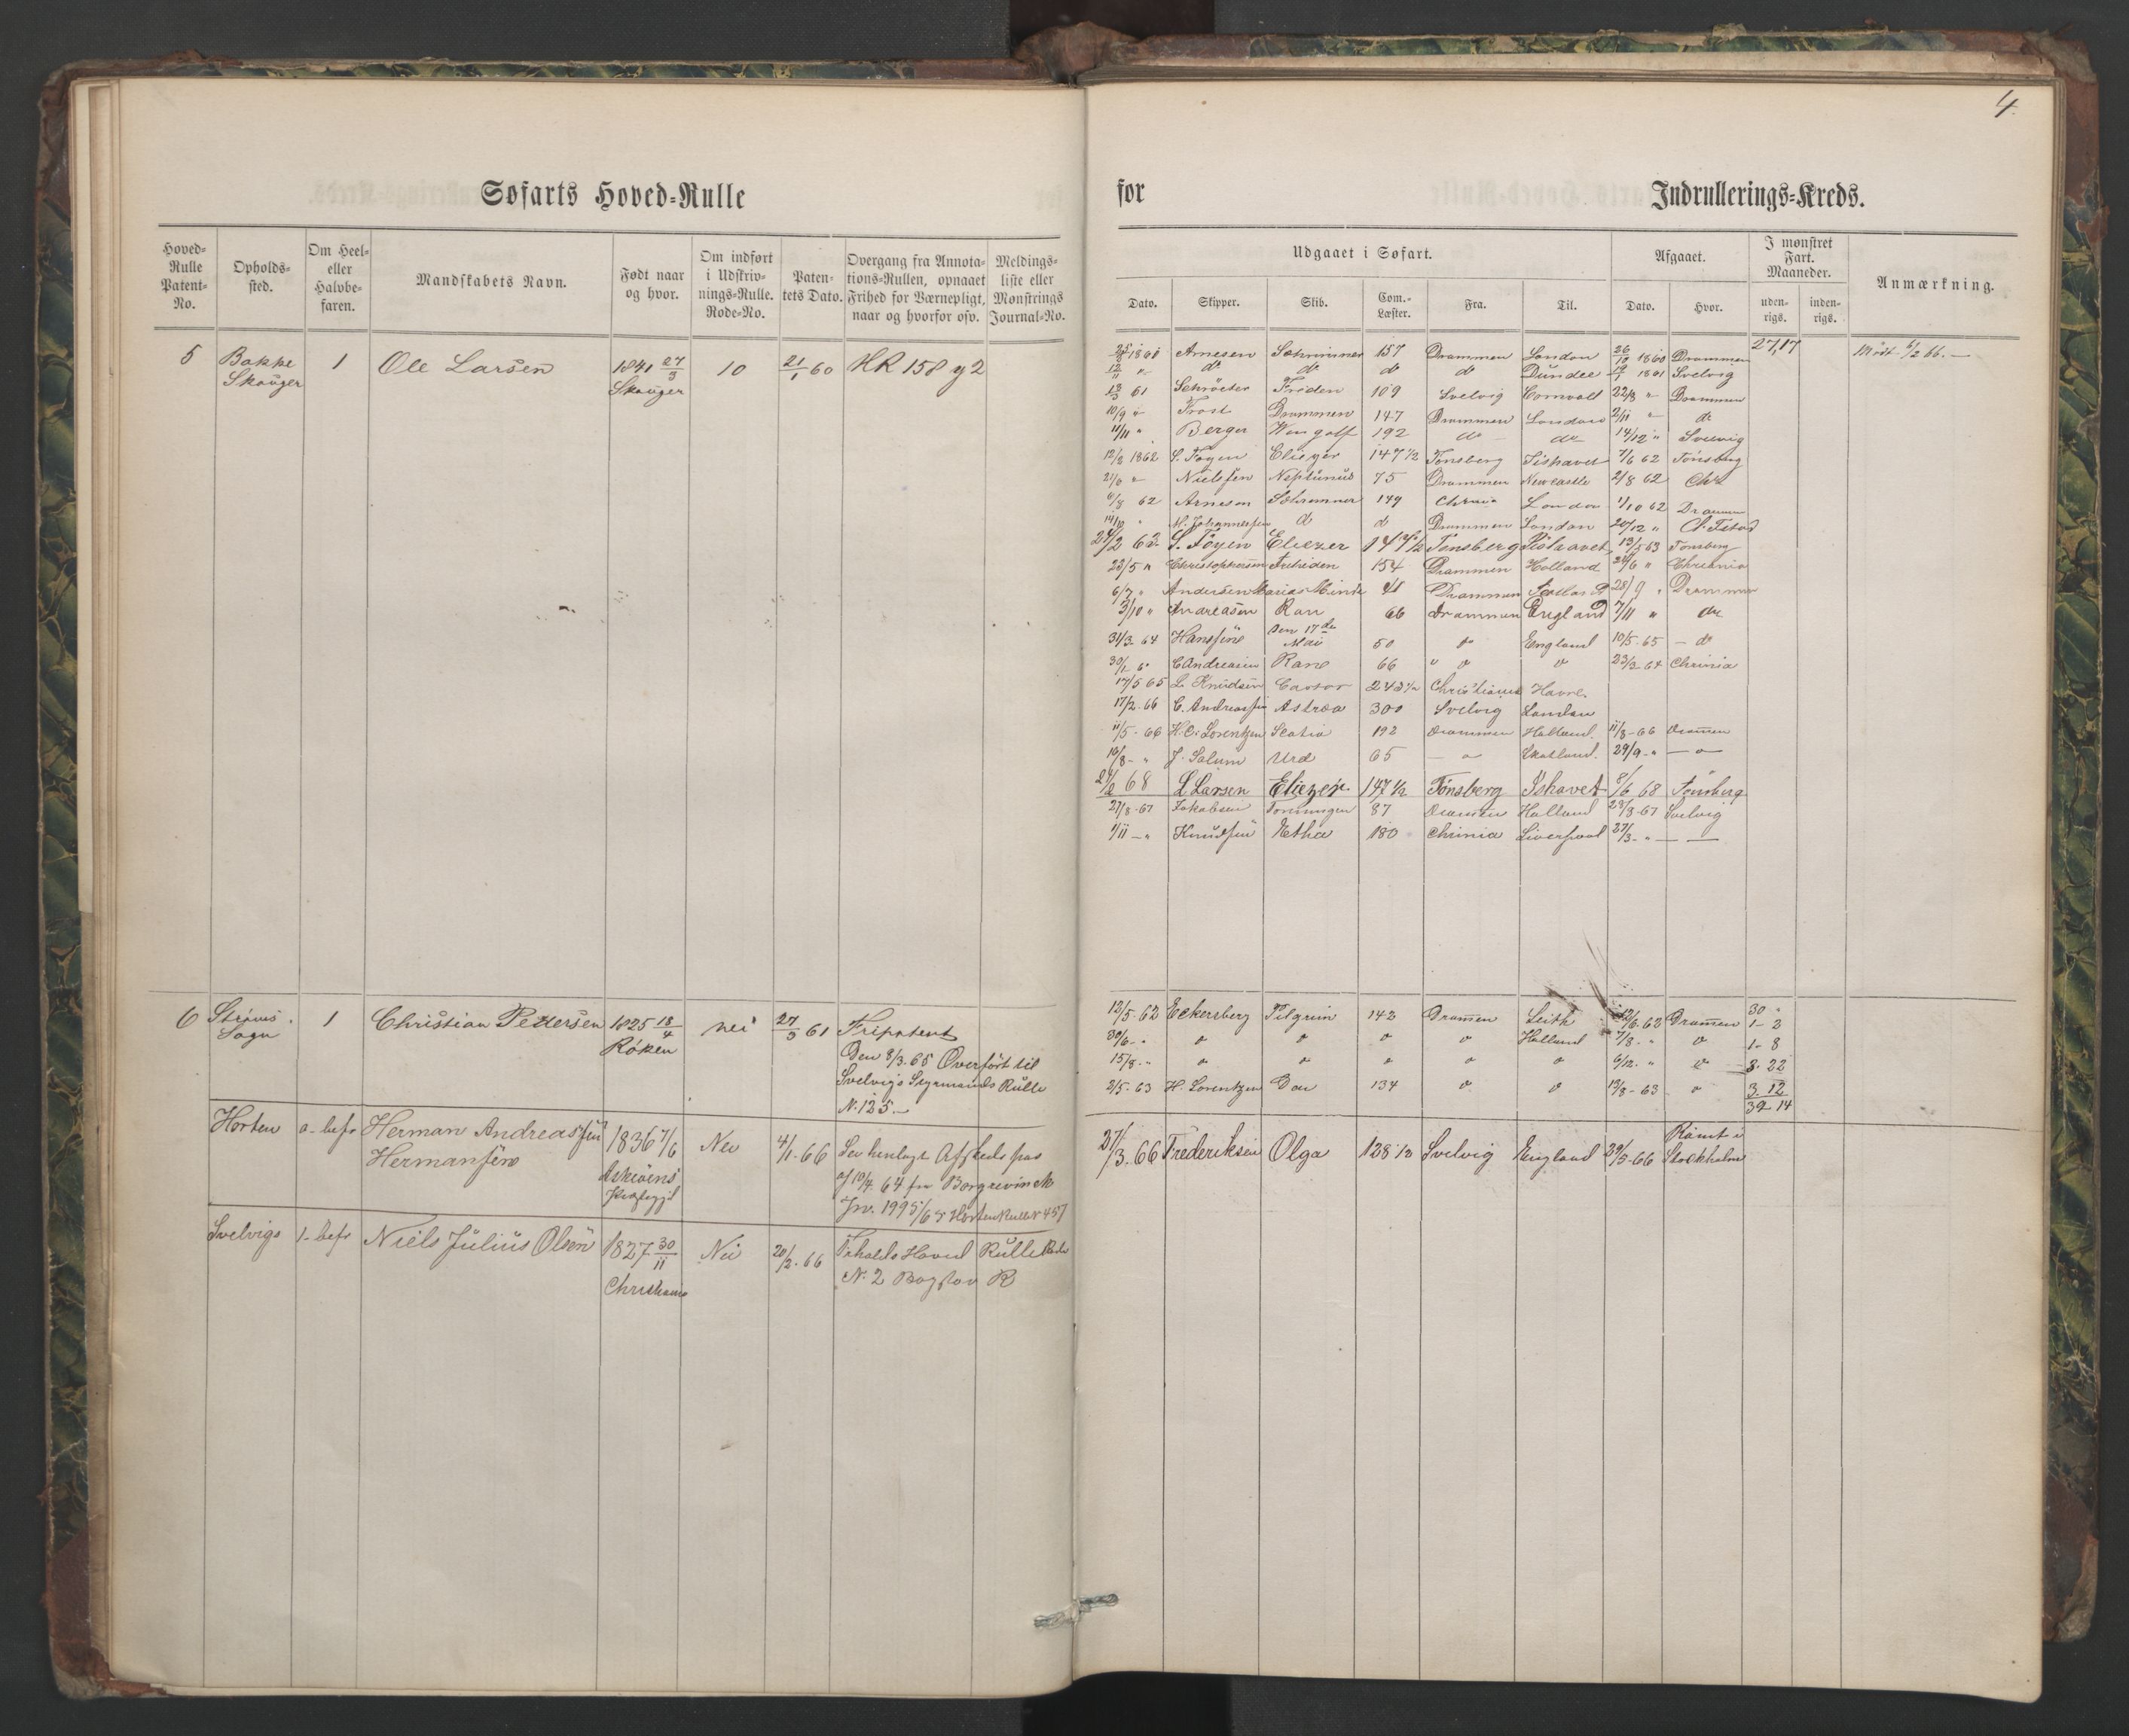 4.
Søfarts Hoved-Rulle
for Indrullerings-Kreds.
Hoved-Rulle Patent-No.
Opholds-sted.
Om Heel- eller Halvbe-faren.
Mandskabets Navn.
Født naar og hvor.
Om indført i Udskriv-nings-Rulle. Rode-No.
Paten-tets Dato.
Overgang fra Annota-tions-Rullen, opnaaet Frihed for Værnepligt, naar og hvorfor osv.
Meldings-liste eller Mønstrings Journal-No.
Udgaaet i Søfart.
Dato. Skipper. Skib. Com.-Læster. Fra. Til.
Afgaaet.
Dato. Hvor.
I mønstret Fart. Maaneder.
uden-rigs. inden-rigs.
Anmærkning.
5 Bakke 1 Ole Larsen 1841 27/3 10 21/1 60 HR 158 y 2
Skouger Skouger
1860 Arnesen 157 Drammen London 26/10 1860 Drammen 27,17 Mödt 6/2 66.
12/11 " do do do do Dundee 19/1 1861 Svelvig
13/3 61 Schröeter Friden 109 Svelvig Cornvall 22/8 " Drammen
10/9 " Frost Drammen 147 Drammen London 2/11 " do
11/11 " Berger Wingolf 192 do do 14/12 " Svelvig
12/2 1862 S. Föyen Eliezer 147 1/2 Tönsberg Iishavet 7/6 62 Tönsberg
21/6 " Nielssen Neptunus 75 Drammen Newcastle 2/8 62 Chr
6/8 62 Arnesen 149 Chrnia London 1/10 62 Drammen
14/10 " M. Johannessen d d Drammen London 20/12 "
24/2 63 S. Föyen Eliezer 147 1/2 Tönsberg Iishavet 13/5 63 Tönsberg
23/5 " Christophersen 154 Drammen Holland 24/6 "
6/7 " Andersen Marias Minde 41 Drammen 28/9 " Drammen
3/10 " Andreasen Ran 66 Drammen England 7/11 " do
31/3 64 Hanssine Den 17de Mai 50 do England 10/5 65 - do
30/1 6" C Andreasen Rane 66 " do do 23/3 64 Chrinia
17/5 65 L. Knudsen Castor 243 1/2 Christiania Havre.
17/2. 66 C. Andreassen Astrea 300 Svelvig London
11/5 - 66 H. C. Lorentzen Scatia 192 Drammen Holland. 11/8 - 66 Dramen
16/8 - " J. Solum Urd 65 - do Skotland. 29/9 - " - do
24/2 68 L Larsen Eliezer 147 1/2 Tönsberg Ishavet 8/6 68 Tönsberg
27/8 - 67 Jakobsen 87 Dramen Holland 23/9 - 67 Svelvig
1/11 - " Knudsen Etha 180 Chrinia Liverpool 27/3 - "
6 Ströms 1 Christian Pettersen 1825 18/4 nei 27/3 61 Fripatent
Sogn Röken Den 8/3. 65 Overfört til
Svelvigs Styrmands Rulle
N. 125.
12/5. 62 Eckersberg Pilgrim 142 Dramen Leith 12/6. 62 Dramen 30 "
30/6 - " do do do do Holland 7/8. " do 1 - 2
15/8. - " do do do do do 6/12. " do 1 - 8
3. 22
2/5. 63 H. Lorentzen Dan 134 do do 13/8 - 63 do 3. 12
39 14
Horten a-befr Herman Andreassen 1836 7/6 Nei 4/1. 66 Sev henlagt Afskeds pas
Hermansen af 10/4. 64 fra Borgrevinck
27/3. 66 Frederiksen Olga 128 1/2 Svelvig England 29/5 - 66 Römt i Stockholm
Svelvigs 1-befr Niels Julius Olsen 1827 30/11 Nei 20/2. 66 Hoved Rulle
Christiania N. 2 Bogstav R